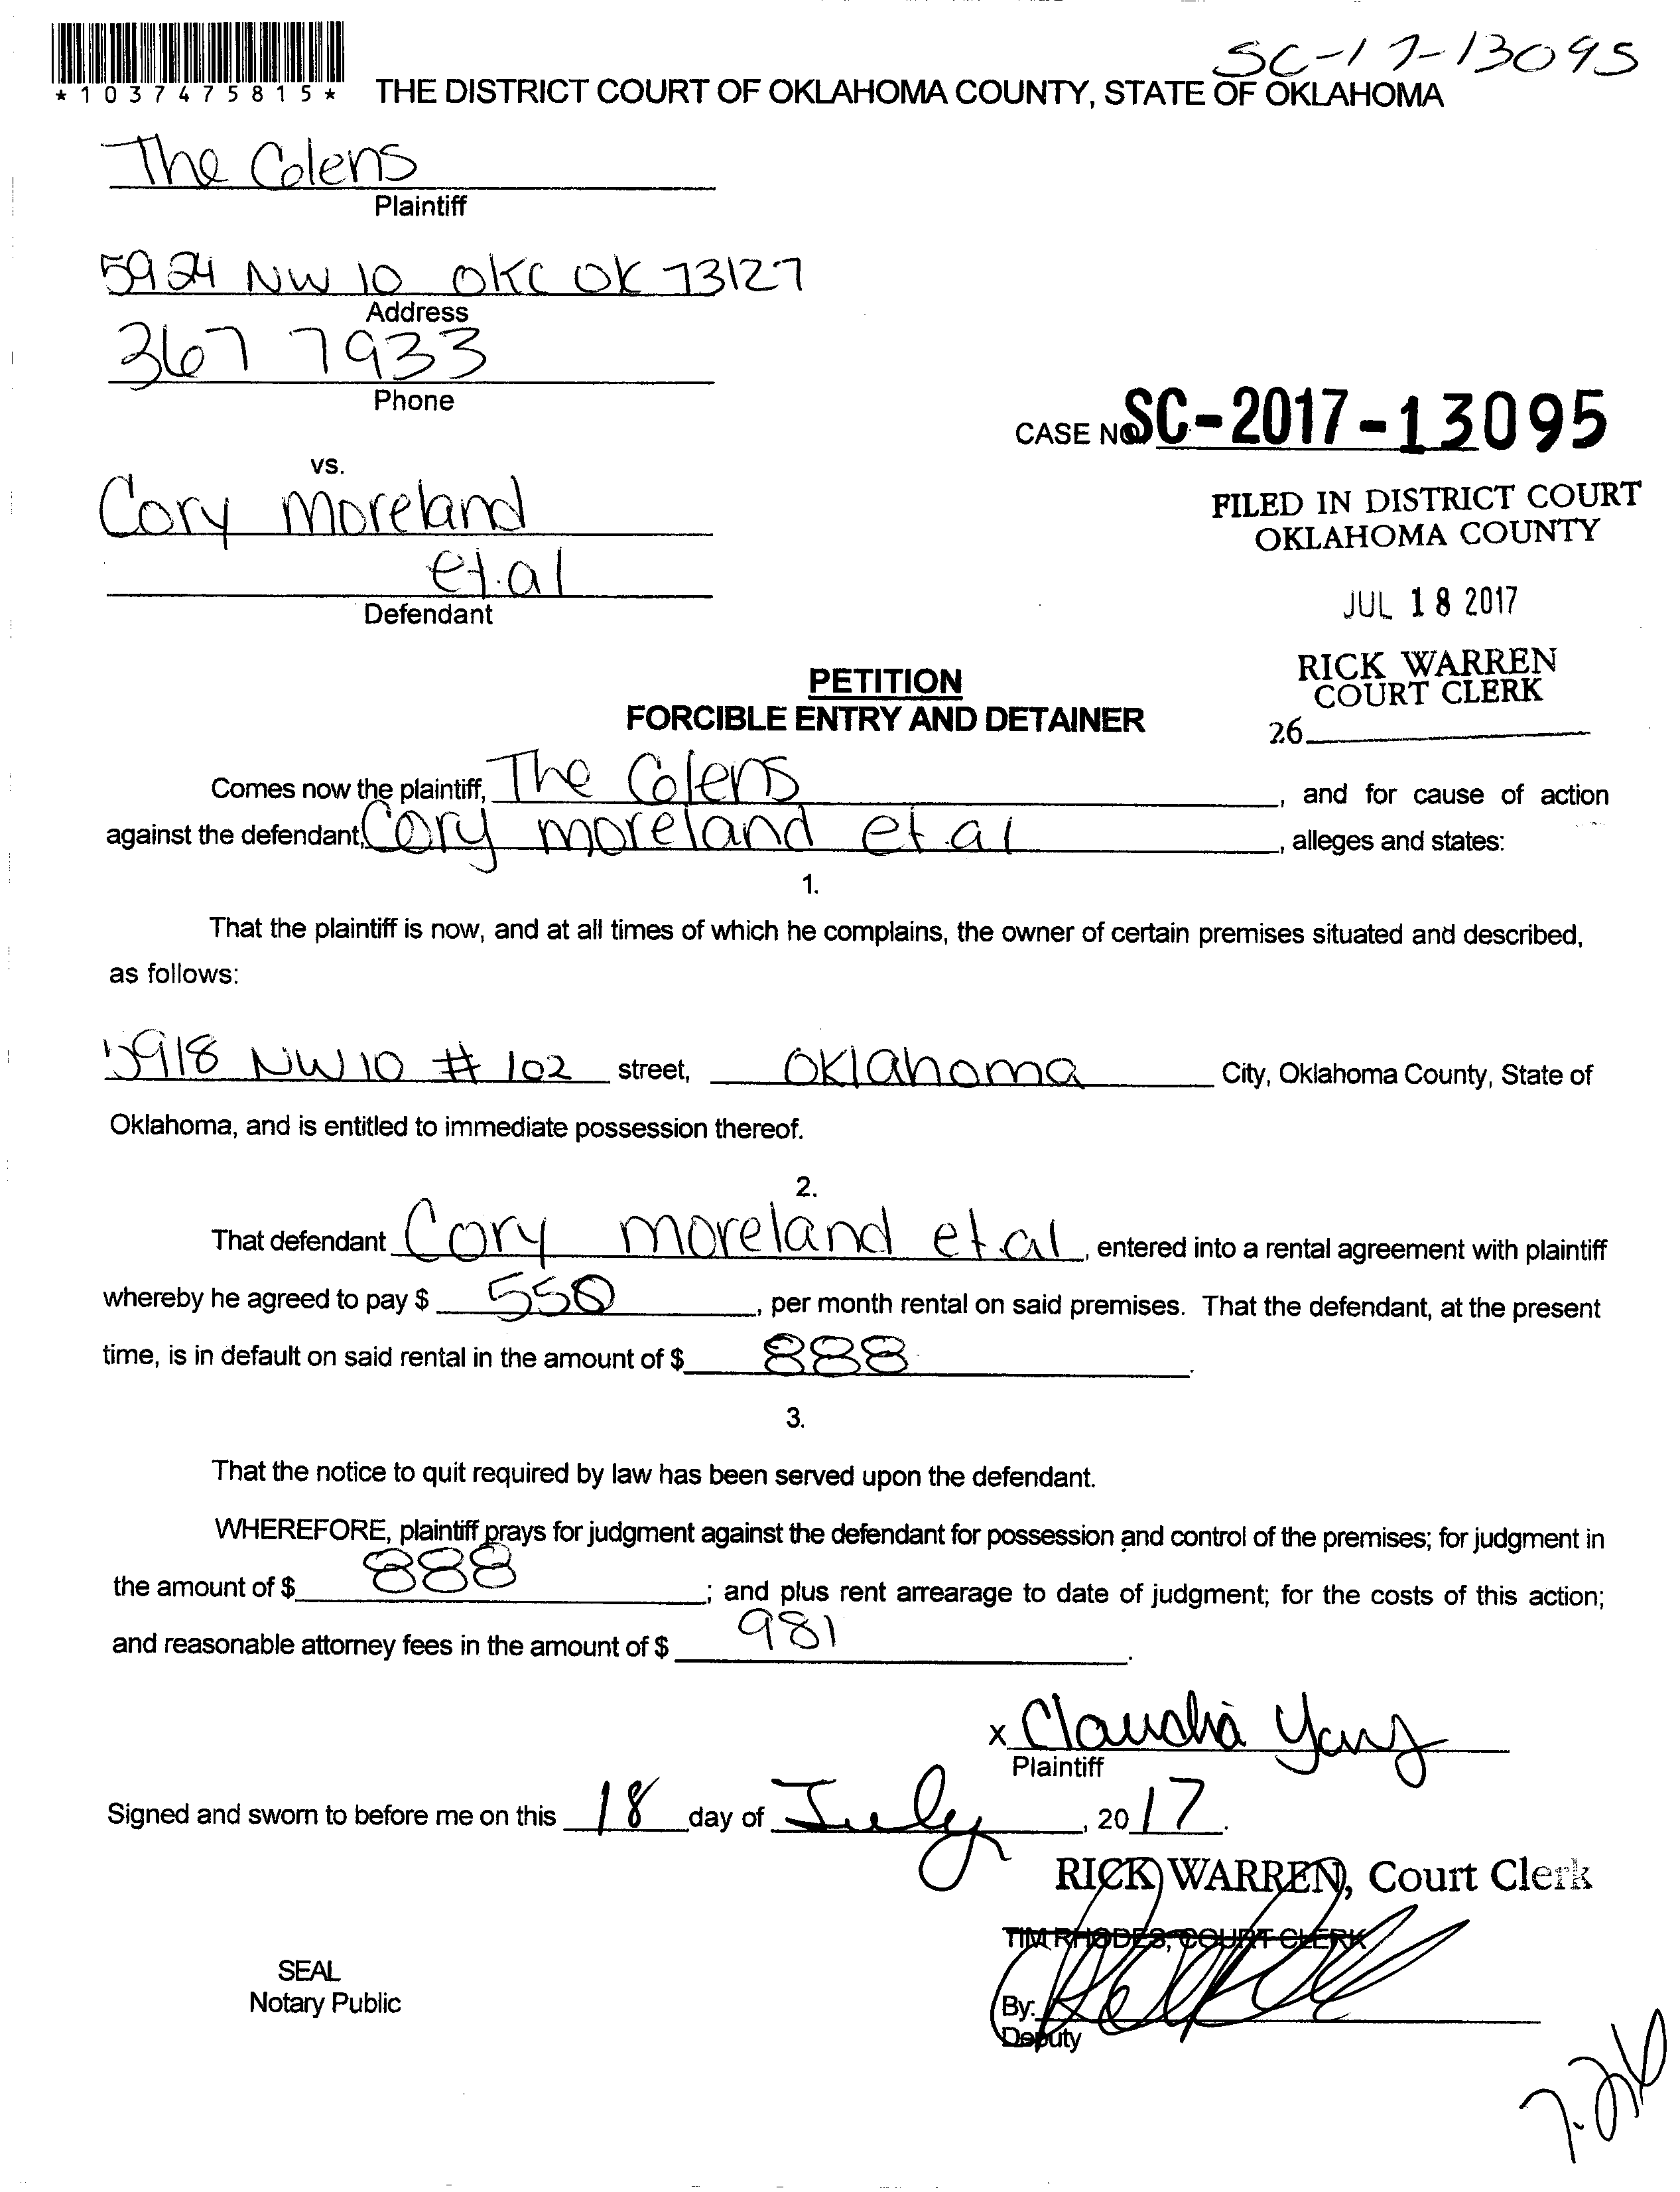 SC-17-13095
*1037475815*
THE DISTRICT COURT OF OKLAHOMA COUNTY, STATE OF OKLAHOMA
The Colens
Plaintiff
5924 NW 10 OKC OK 73127
Address
367 7933
Phone
CASE NO. SC-2017-13095
vs.
Cory Moreland
et.al
Defendant
FILED IN DISTRICT COURT
OKLAHOMA COUNTY
JUL 18 2017
RICK WARREN
COURT CLERK
26
PETITION
FORCIBLE ENTRY AND DETAINER
Comes now the plaintiff, The Colens, and for cause of action
against the defendant, Cory moreland et.al, alleges and states:
1.
That the plaintiff is now, and at all times of which he complains, the owner of certain premises situated and described,
as follows:
5918 NW 10 # 102 street, Oklahoma City, Oklahoma County, State of
Oklahoma, and is entitled to immediate possession thereof.
2.
That defendant Cory moreland et.al, entered into a rental agreement with plaintiff
whereby he agreed to pay $ 550, per month rental on said premises. That the defendant, at the present
time, is in default on said rental in the amount of $ 888.
3.
That the notice to quit required by law has been served upon the defendant.
WHEREFORE, plaintiff prays for judgment against the defendant for possession and control of the premises; for judgment in
the amount of $ 888; and plus rent arrearage to date of judgment; for the costs of this action;
and reasonable attorney fees in the amount of $ 981.
x Claudia
Plaintiff
Signed and sworn to before me on this 18 day of July, 2017.
RICK WARREN, Court Clerk
TIM RHODES, COURT CLERK
SEAL
Notary Public
By:
Deputy
7-26